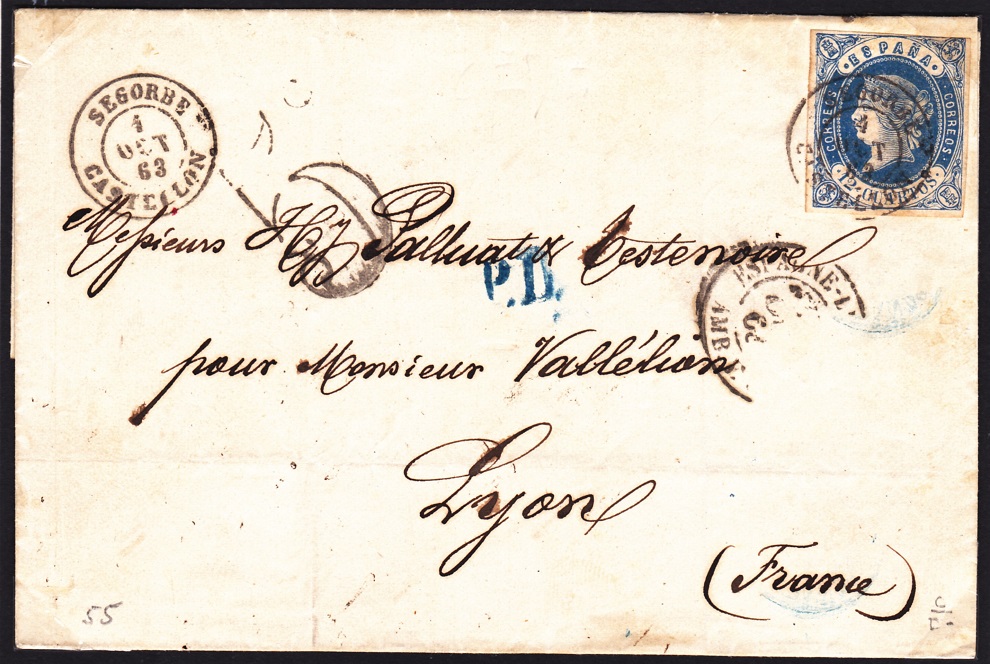 SEGORBE
1
OCT
63
CASTELLÓN
ESPAÑA
CORREOS
CORREOS
12 CUARTOS
1
Messieurs Hy Palluat & Testenoire
P.D.
ESPAGNE
AMB
63
pour Monsieur Vallélion
Lyon
(France)
55